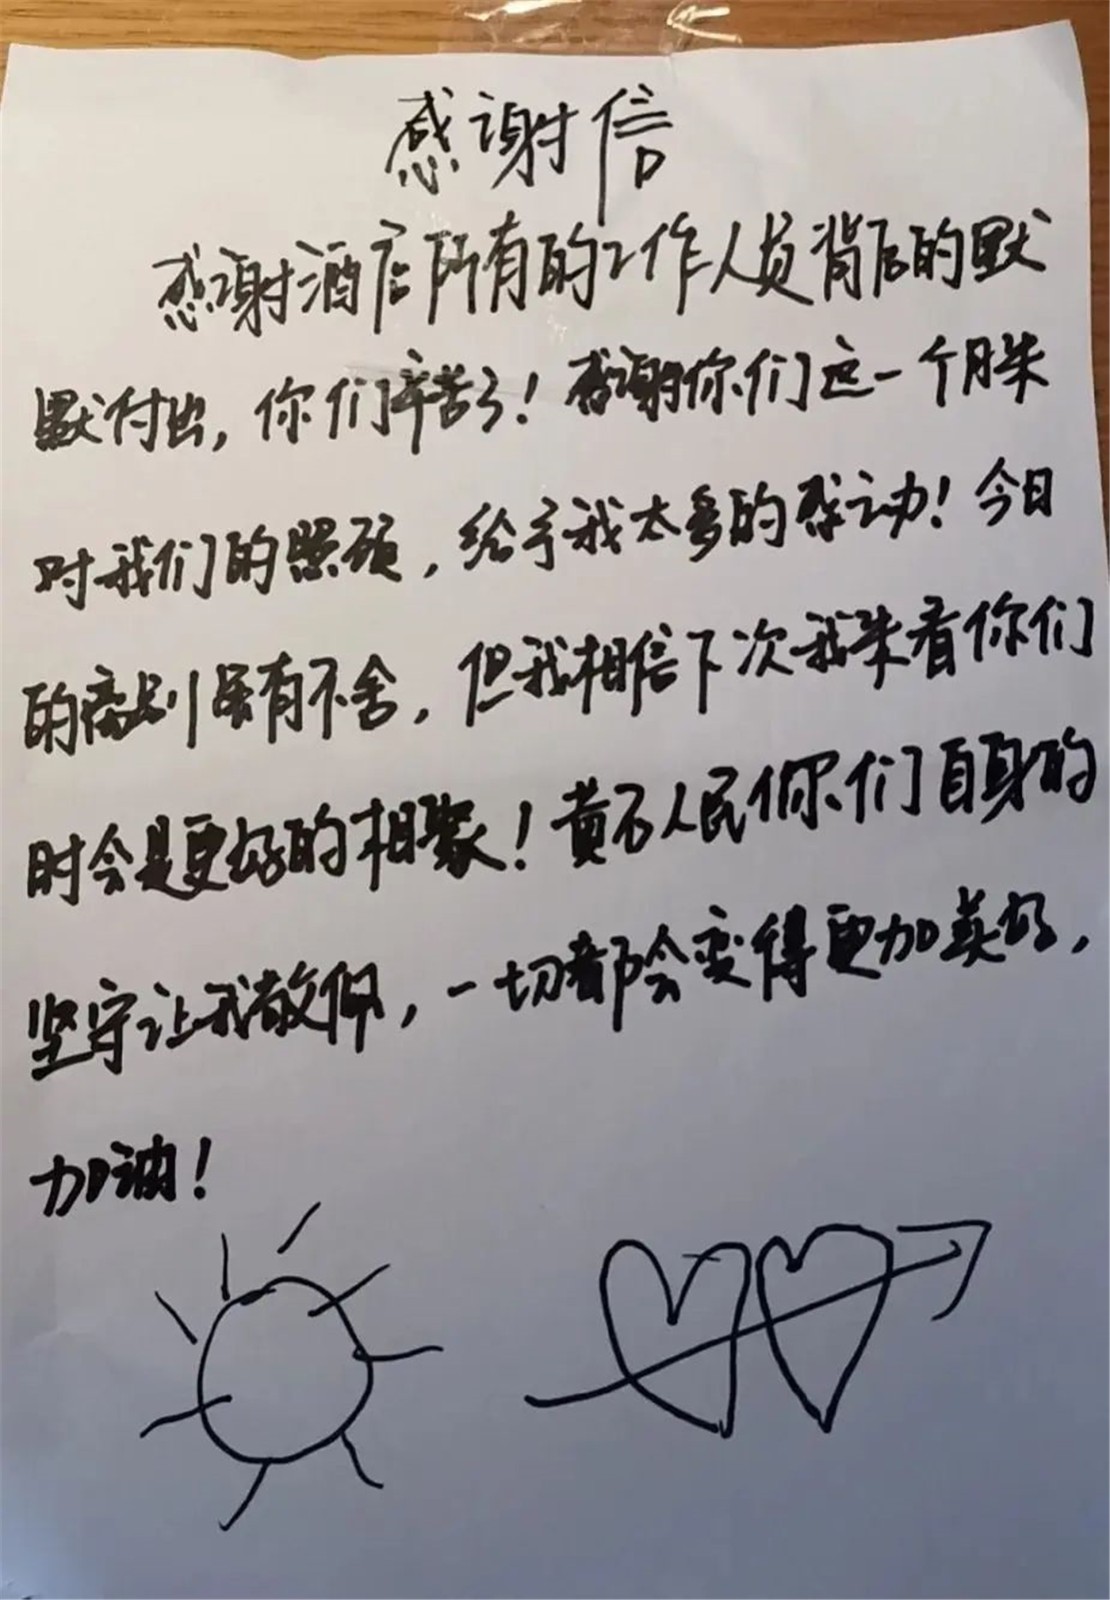 感谢信
感谢酒店所有的工作人员背后的默
默付出，你们辛苦了！感谢你们这一个月来
对我们的照顾，给予我太多的感动！今日
的离别虽有不舍，但我相信下次我来看你们
时会是更好的相聚！黄石人民你们自身的
坚守让我敬佩，一切都会变得更加美好，
加油！